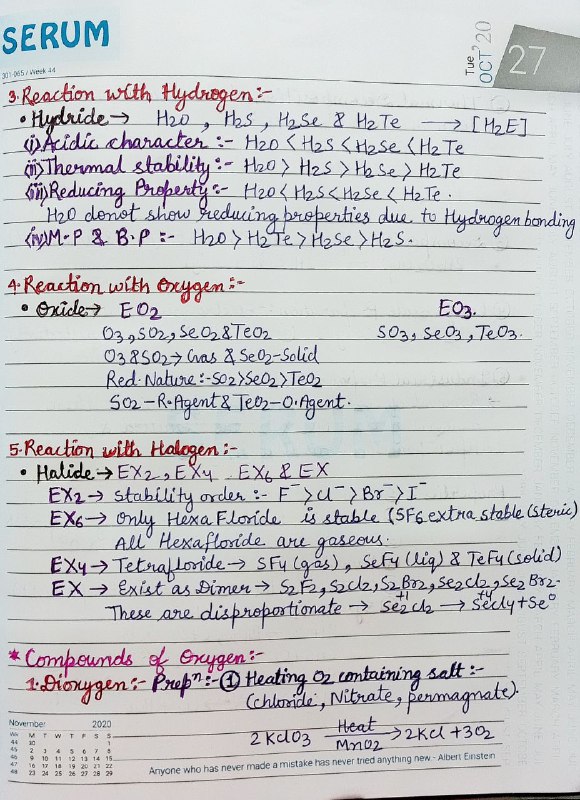 SERUM
301-065 / Week 44
Tue, OCT '20
27
3. Reaction with Hydrogen:-
• Hydride → H2O , H2S , H2Se & H2Te ⟶ [H2E]
(i) Acidic character :- H2O < H2S < H2Se < H2Te
(ii) Thermal stability :- H2O > H2S > H2Se > H2Te
(iii) Reducing Property:- H2O < H2S < H2Se < H2Te.
H2O donot show reducing properties due to Hydrogen bonding
(iv) M.P & B.P :- H2O > H2Te > H2Se > H2S.
4. Reaction with Oxygen:-
• Oxide → EO2 EO3.
O3, SO2, SeO2 & TeO2 SO3, SeO3, TeO3.
O3 & SO2 → Gas & SeO2-Solid
Red. Nature :- SO2 > SeO2 > TeO2
SO2 - R. Agent & TeO2 - O. Agent.
5. Reaction with Halogen:-
• Halide → EX2, EX4 EX6 & EX
EX2 → Stability order :- F⁻ > Cl⁻ > Br⁻ > I⁻
EX6 → Only Hexa Floride is stable (SF6 extra stable (steric)
All Hexafloride are gaseous.
EX4 → Tetrafloride → SF4 (gas), SeF4 (liq) & TeF4 (solid)
EX → Exist as Dimer → S2F2, S2Cl2, S2Br2, Se2Cl2, Se2Br2.
These are disproportionate → Se2⁺¹Cl2 ⟶ Se⁺⁴Cl4 + Se⁰
* Compounds of Oxygen:-
1. Dioxygen:- Prepⁿ:- ① Heating O2 containing salt :-
(chloride, Nitrate, permagnate).
2KClO3 Heat MnO2 → 2KCl + 3O2
November 2020
Wk M T W T F S S
44 30 1
45 2 3 4 5 6 7 8
46 9 10 11 12 13 14 15
47 16 17 18 19 20 21 22
48 23 24 25 26 27 28 29
Anyone who has never made a mistake has never tried anything new - Albert Einstein